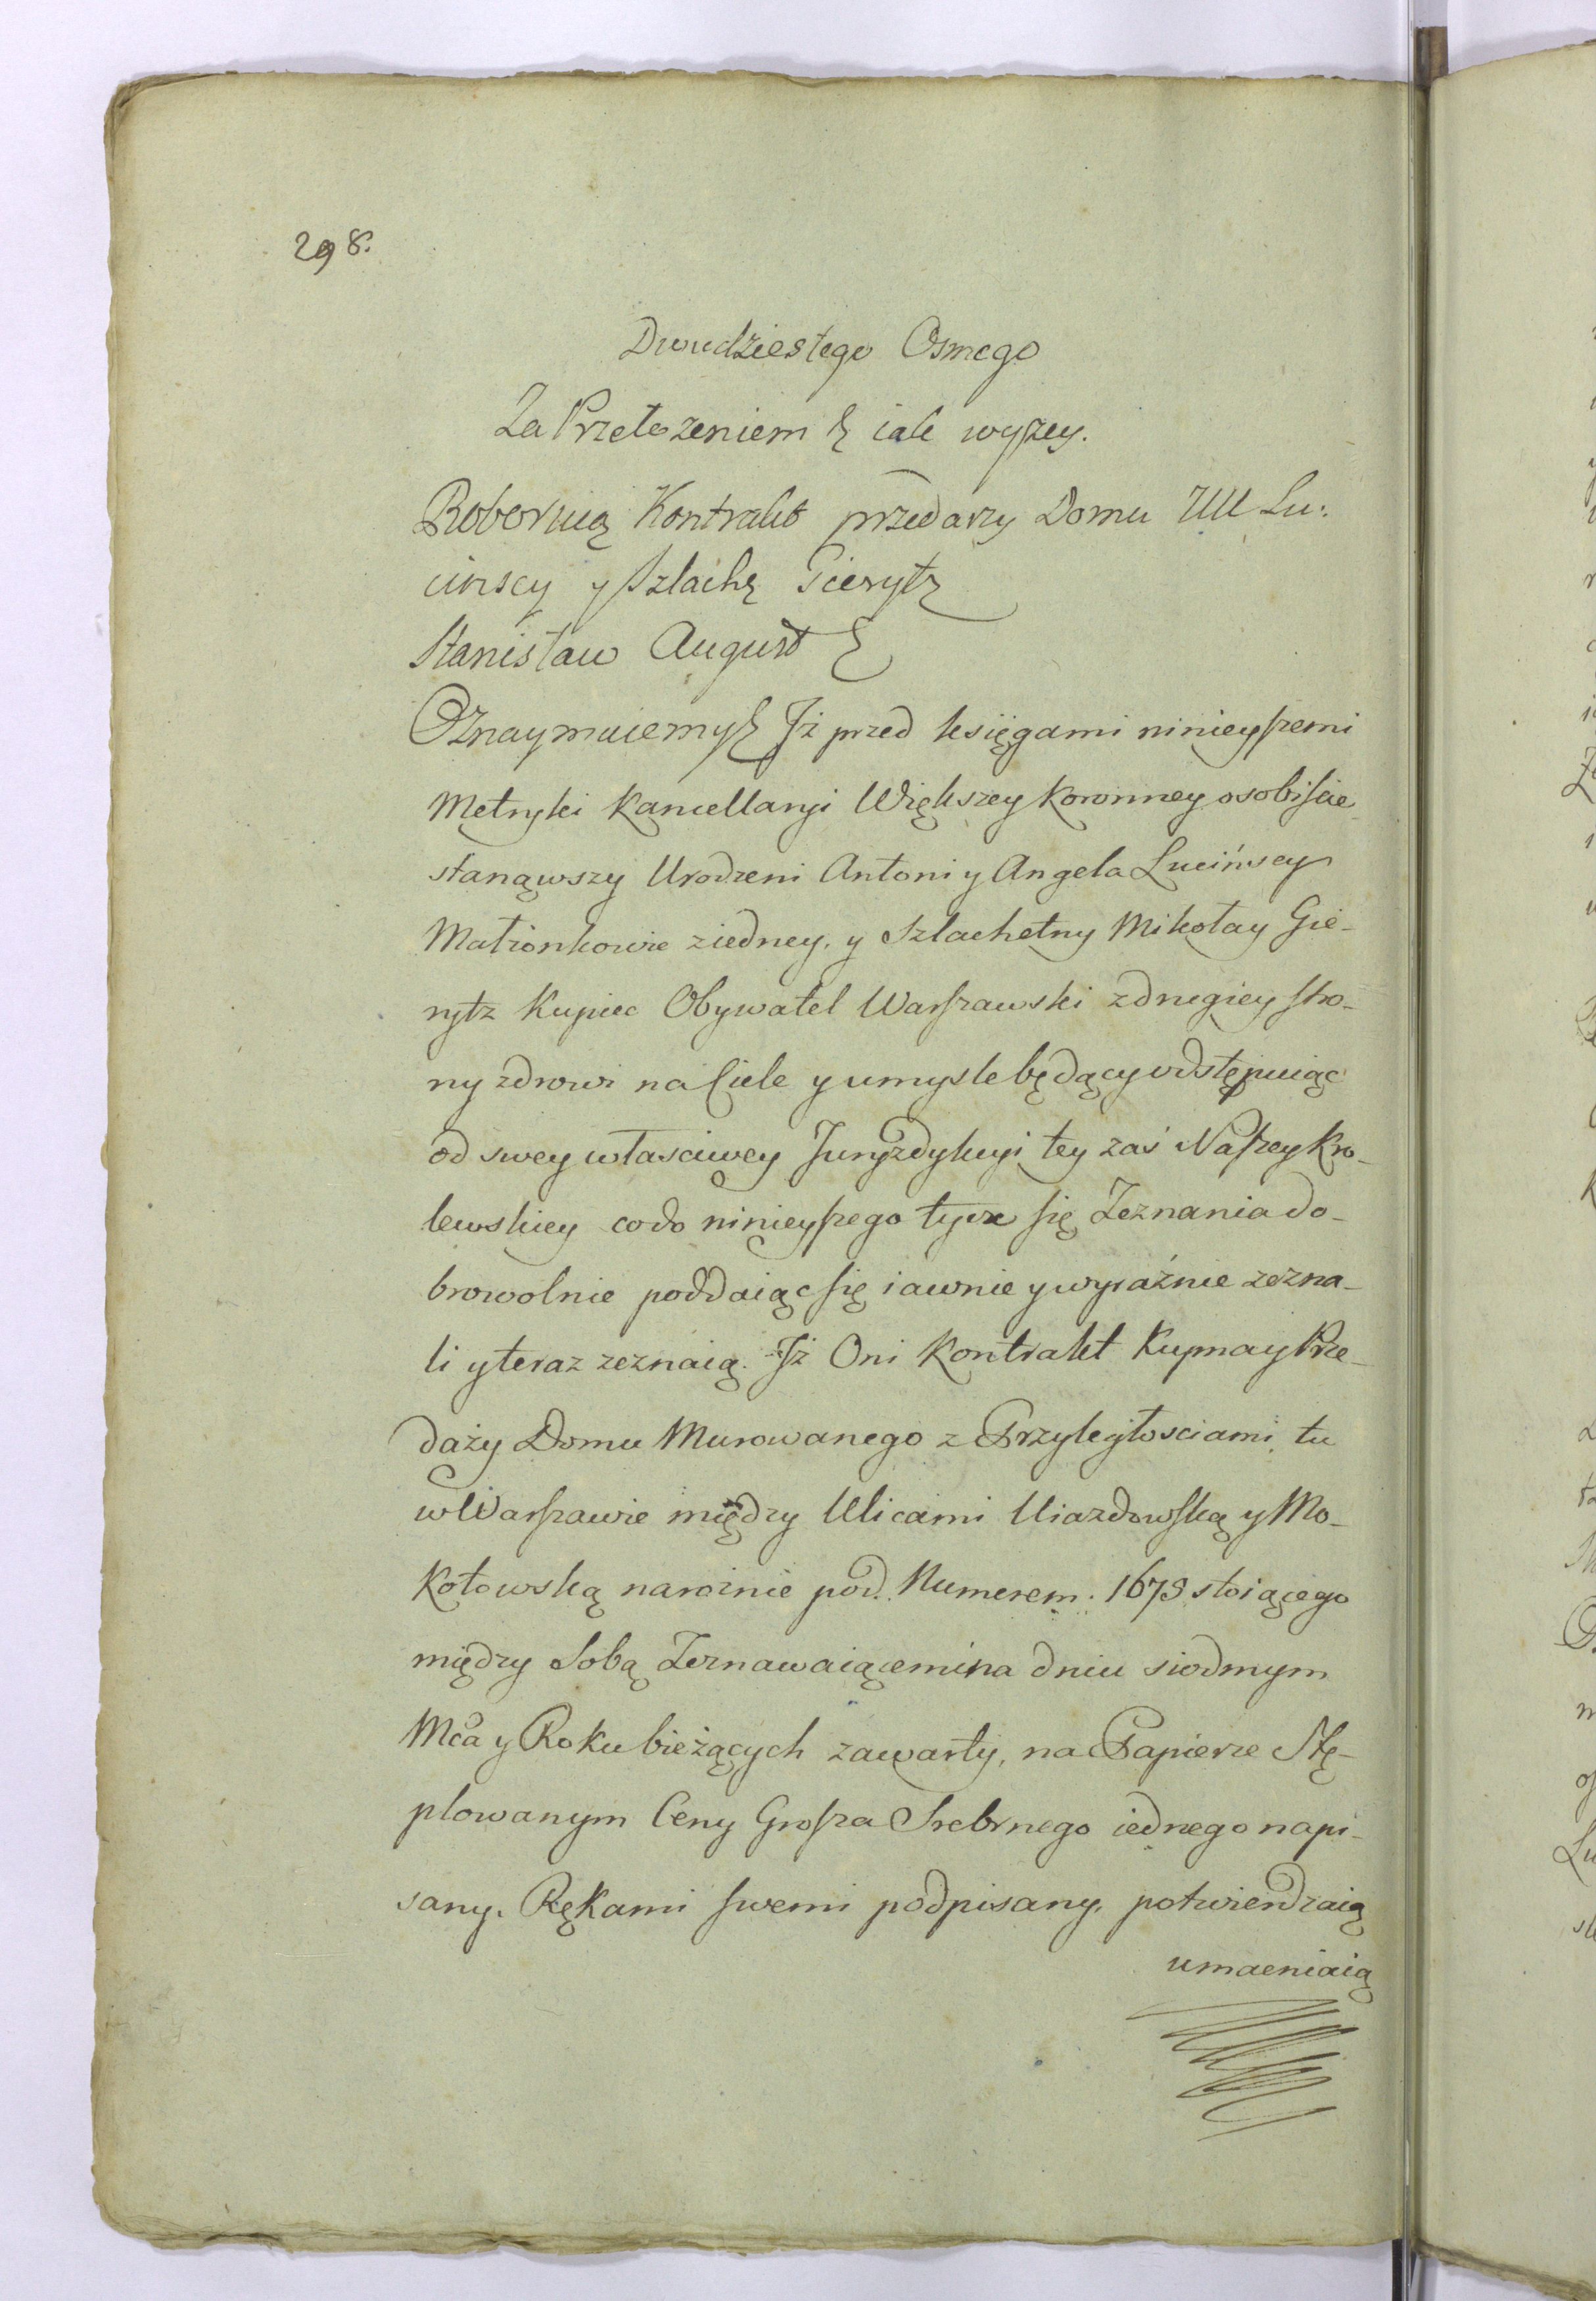 298.
Dwudziestego Osmego
Za Przełożeniem & iak wyszey.
Roboruią Kontrakt przedarzy Domu UU Lu:
cinscy y Szlachę Gierytz
Stanisław August &
Oznaymuiemy & Iż przed księgami ninieyszemi
Metryki Kancellaryi Większey Koronney osobiscie
stanąwszy Urodzeni Antoni y Angela Lucińscy
Małżonkowie ziedney, y Szlachetny Mikołay Gie-
rytz Kupiec Obywatel Warszawski zdrugiey stro-
ny zdrowi na Ciele y umysle będący odstępuiąc
od swey własciwey Juryzdykcyi tey zaś Naszey Kro-
lewskiey codo ninieyszego tycze się Zeznania do-
browolnie poddaiąc się iawnie y wyraźnie zezna-
li y teraz zeznaią. Iż Oni Kontrakt Kupna y Prze-
daży Domu Murowanego z Przyległosciami tu
w Warszawie między Ulicami Uiazdowską y Mo-
kotowską narożnie pod Numerem. 1678 stoiącego
między Sobą Zeznawaiącemi na dniu siodmym
Mca y Roku bieżących zawarty, na Papierze Stę-
plowanym Ceny Grosza Srebrnego iednego napi-
sany. Rękami swemi podpisany, potwierdzaią
umacniaią